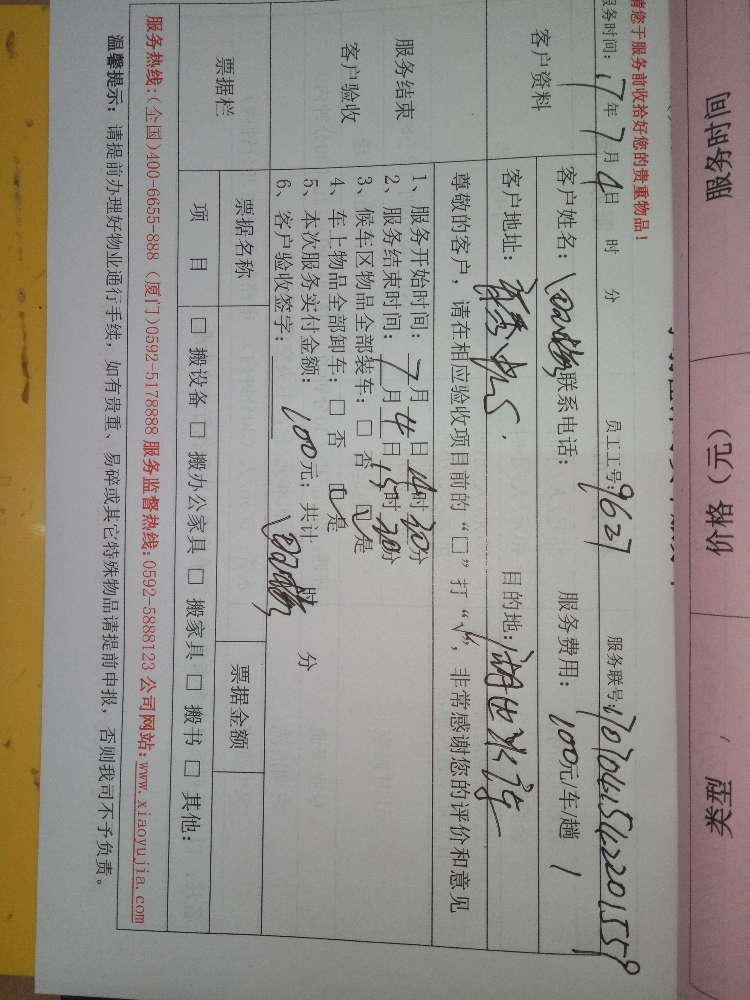 服务时间 价格（元） 类型
请您于服务前收拾好您的贵重物品！
服务时间：17年7月4日 时 分 员工工号：9627 服务联号：
客户资料
客户姓名： 联系电话： 服务费用：100元/车/趟 1
客户地址： 目的地：
尊敬的客户，请在相应验收项目前的“□”打“√”，非常感谢您的评价和意见
服务结束
客户验收
1、服务开始时间：7月4日14时30分
2、服务结束时间：7月4日15时30分
3、候车区物品全部装车：□否 □是
4、车上物品全部卸车：□否 □是
5、本次服务实付金额：100元；共计 时 分
6、客户验收签字：
票据栏
票据名称 票据金额
项目 □搬设备 □搬办公家具 □搬家具 □搬书 □其他：
服务热线：(全国)400-6655-888 (厦门)0592-5178888 服务监督热线：0592-5888123 公司网站：www.xiaoyujia.com
温馨提示：请提前办理好物业通行手续，如有贵重、易碎或其它特殊物品请提前申报，否则我司不予负责。